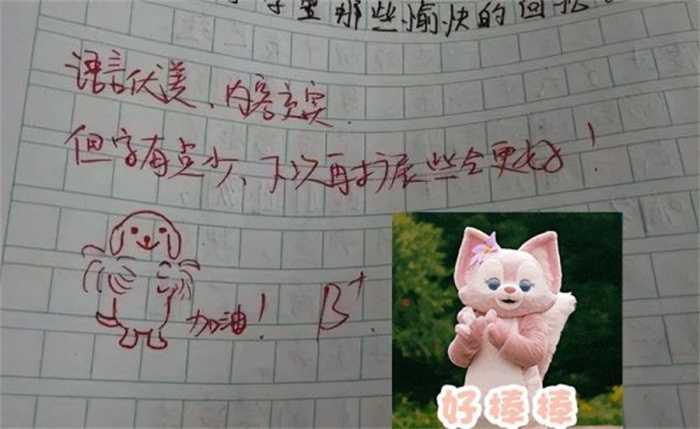 里那些愉快的回忆
语言优美、内容充实
但字有点少、下次再扩展些会更好！
加油！ B+
好棒棒